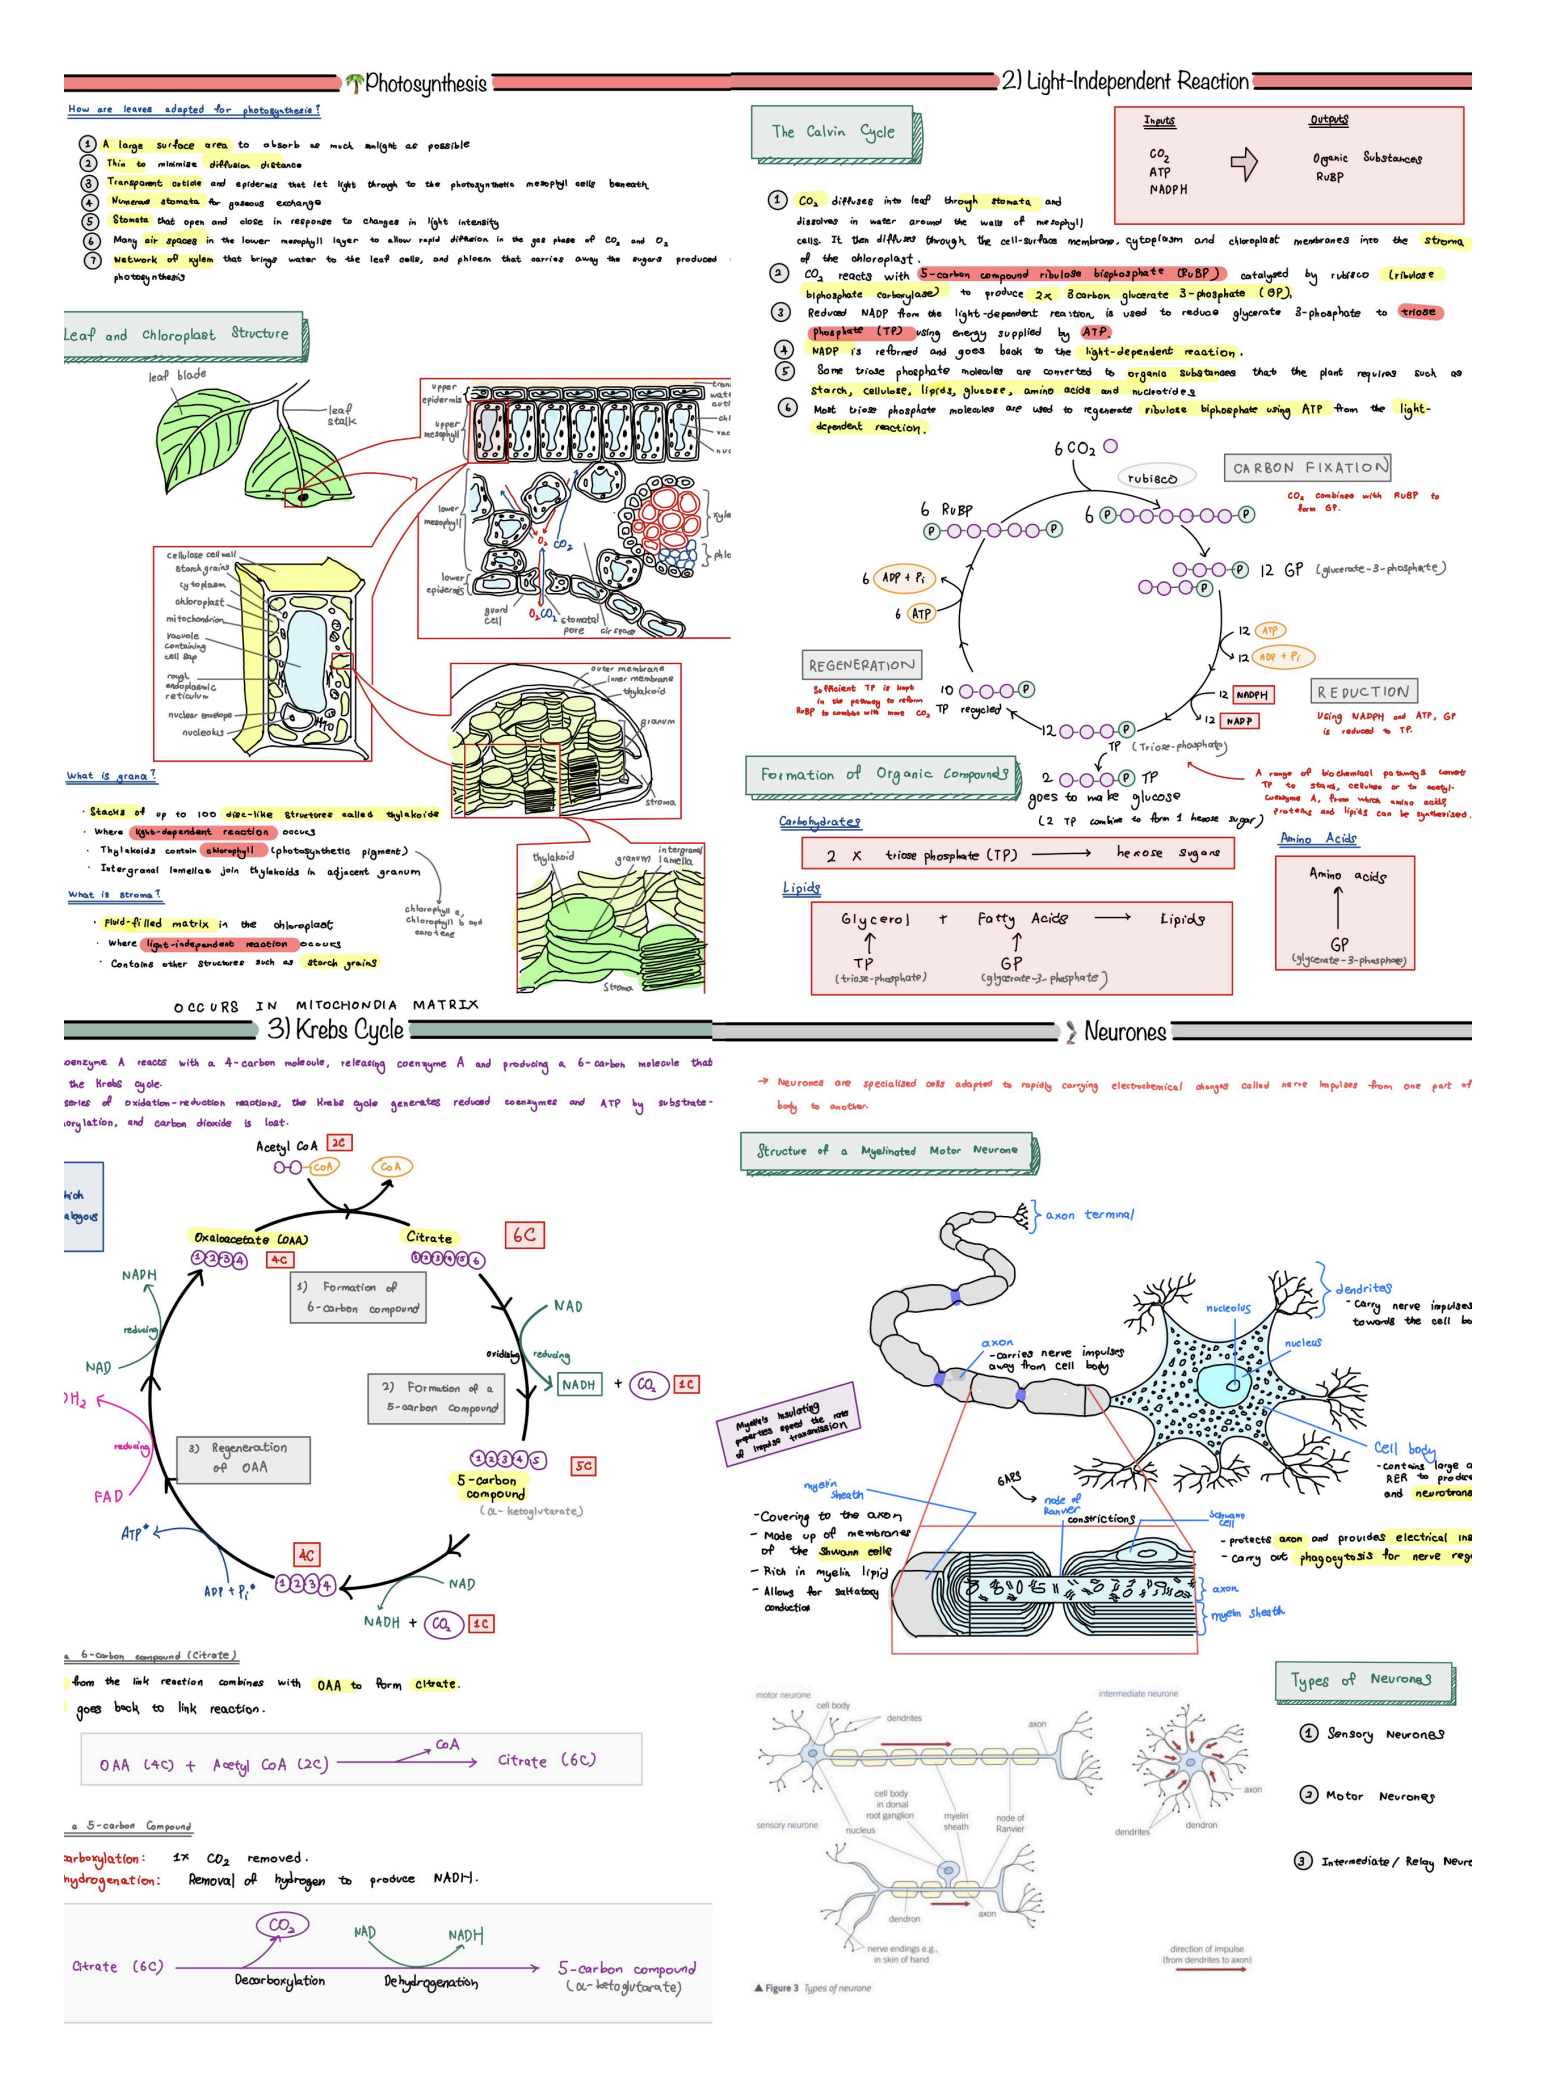 Photosynthesis
How are leaves adapted for photosynthesis?
1 A large surface area to absorb as much sunlight as possible
2 Thin to minimise diffusion distance
3 Transparent cuticle and epidermis that let light through to the photosynthetic mesophyll cells beneath
4 Numerous stomata for gaseous exchange
5 Stomata that open and close in response to changes in light intensity
6 Many air spaces in the lower mesophyll layer to allow rapid diffusion in the gas phase of CO2 and O2
7 Network of xylem that brings water to the leaf cells, and phloem that carries away the sugars produced
photosynthesis
Leaf and Chloroplast Structure
leaf blade
leaf
stalk
upper
epidermis
upper
mesophyll
lower
mesophyll
lower
epidermis
guard
cell
O2 CO2
O2 CO2
stomatal
pore
air space
cellulose cell wall
starch grains
cytoplasm
chloroplast
mitochondrion
vacuole
containing
cell sap
rough
endoplasmic
reticulum
nuclear envelope
nucleolus
outer membrane
inner membrane
thylakoid
granum
stroma
What is grana?
· Stacks of up to 100 disc-like structures called thylakoids
· Where light-dependent reaction occurs
· Thylakoids contain chlorophyll (photosynthetic pigment)
· Intergranal lamellae join thylakoids in adjacent granum
chlorophyll a,
chlorophyll b and
carotene
What is stroma?
· Fluid-filled matrix in the chloroplast
· Where light-independent reaction occurs
· Contains other structures such as starch grains
thylakoid
granum
intergranal
lamella
stroma
2) Light-Independent Reaction
The Calvin Cycle
Inputs
Outputs
CO2
ATP
NADPH
Organic Substances
RuBP
1 CO2 diffuses into leaf through stomata and
dissolves in water around the walls of mesophyll
cells. It then diffuses through the cell-surface membrane, cytoplasm and chloroplast membranes into the stroma
of the chloroplast.
2 CO2 reacts with 5-carbon compound ribulose bisphosphate (RuBP) catalysed by rubisco (ribulose
biphosphate carboxylase) to produce 2x 3carbon glucerate 3-phosphate (GP).
3 Reduced NADP from the light-dependent reaction is used to reduce glycerate 3-phosphate to triose
phosphate (TP) using energy supplied by ATP.
4 NADP is reformed and goes back to the light-dependent reaction.
5 Some triose phosphate molecules are converted to organic substances that the plant requires such as
starch, cellulose, lipids, glucose, amino acids and nucleotides
6 Most triose phosphate molecules are used to regenerate ribulose biphosphate using ATP from the light-
dependent reaction.
6 CO2
rubisco
CARBON FIXATION
CO2 combines with RuBP to
form GP.
6 RuBP
P P
6 P P
P 12 GP (glycerate-3-phosphate)
P
6 ADP + Pi
6 ATP
12 ATP
12 ADP + Pi
REGENERATION
Sufficient TP is kept
in the pathway to reform
RuBP to combine with more CO2
10 P
TP recycled
12 NADPH
12 NADP
REDUCTION
Using NADPH and ATP, GP
is reduced to TP.
12 P
TP (Triose-phosphate)
2 P TP
goes to make glucose
(2 TP combine to form 1 hexose sugar)
A range of biochemical pathways convert
TP to starch, cellulose or to acetyl-
coenzyme A, from which amino acids,
proteins and lipids can be synthesised.
Formation of Organic Compounds
Carbohydrates
2 X triose phosphate (TP) → hexose sugars
Lipids
Glycerol + Fatty Acids → Lipids
TP
(triose-phosphate)
GP
(glycerate-3-phosphate)
Amino Acids
Amino acids
GP
(glycerate-3-phosphate)
OCCURS IN MITOCHONDIA MATRIX
3) Krebs Cycle
oenzyme A reacts with a 4-carbon molecule, releasing coenzyme A and producing a 6-carbon molecule that
the Krebs cycle.
series of oxidation-reduction reactions, the Krebs cycle generates reduced coenzymes and ATP by substrate-
orylation, and carbon dioxide is lost.
hich
alogous
Acetyl CoA 2C
CoA
CoA
Oxaloacetate (OAA)
1 2 3 4 4C
Citrate 6C
1 2 3 4 5 6
1) Formation of
6-carbon compound
NADH
reducing
NAD
NAD
oxidising reducing
NADH + CO2 1C
2) Formation of a
5-carbon compound
H2
reducing
FAD
3) Regeneration
of OAA
1 2 3 4 5 5C
5-carbon
compound
(α-ketoglutarate)
ATP*
ADP + Pi*
4C
1 2 3 4
NAD
NADH + CO2 1C
a 6-carbon compound (Citrate)
from the link reaction combines with OAA to form citrate.
goes back to link reaction.
CoA
OAA (4C) + Acetyl CoA (2C) → Citrate (6C)
a 5-carbon Compound
arboxylation: 1x CO2 removed.
hydrogenation: Removal of hydrogen to produce NADH.
CO2
NAD
NADH
Citrate (6C)
Decarboxylation
Dehydrogenation
5-carbon compound
(α-ketoglutarate)
Neurones
→ Neurones are specialised cells adapted to rapidly carrying electrochemical changes called nerve impulses from one part of
body to another.
Structure of a Myelinated Motor Neurone
axon terminal
dendrites
- Carry nerve impulses
towards the cell bo
nucleolus
nucleus
axon
-carries nerve impulses
away from cell body
Myelin's insulating
properties speed the rate
of impulse transmission
Cell body
-contains large a
RER to produce
and neurotrans
GAPS
myelin
sheath
- Covering to the axon
- Made up of membranes
of the Shwann cells
- Rich in myelin lipid
- Allows for saltatory
conduction
node of
Ranvier
constrictions
Schwann
cell
- protects axon and provides electrical ins
- Carry out phagocytosis for nerve reg
axon
myelin sheath
Types of Neurones
1 Sensory Neurones
2 Motor Neurones
3 Intermediate / Relay Neuro
motor neurone
cell body
dendrites
axon
intermediate neurone
axon
dendron
dendrites
sensory neurone
cell body
in dorsal
root ganglion
nucleus
myelin
sheath
node of
Ranvier
dendron
axon
nerve endings e.g.,
in skin of hand
direction of impulse
(from dendrites to axon)
▲ Figure 3 Types of neurone